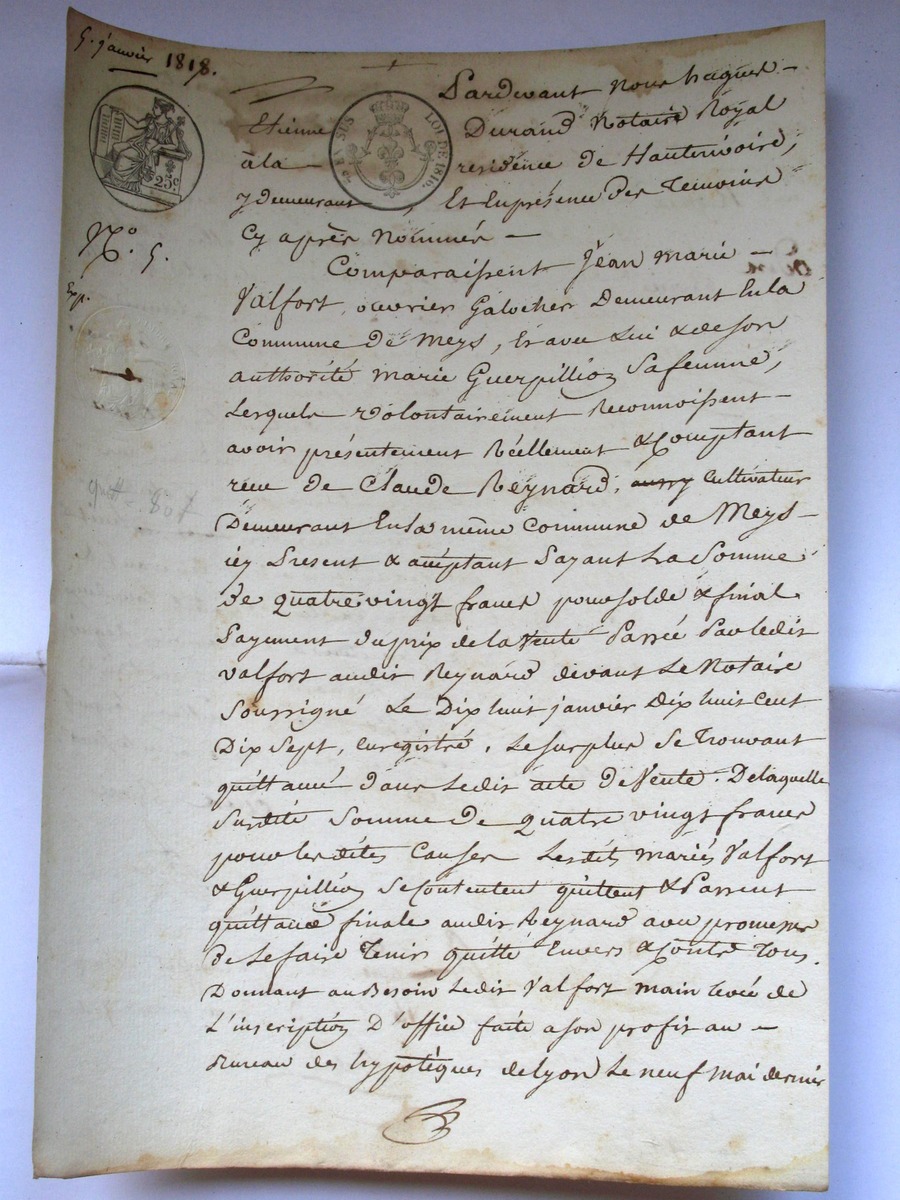 5. janvier 1818.
25c
EN SUS LOI DE 1816.
No. 5.
Exp.
quitt. 80 f
Pardevant Nous hugues -
Etienne Durand Notaire Royal
àla - residence de Hauterivoire,
y Demeurant, Et Enprésence Des Temoins
Cy après nommés -
Comparaissent Jean marie -
Valfort, ouvrier Galocher Demeurant Enla
Commune De Meys, Et avec Lui & de son
authorité marie Guerpillion Safemme,
Lesquels volontairement Reconnoissent -
avoir présentement Réellement & Comptant
reçu de Claude Reynard, Cultivateur
Demeurant Enla même Commune de Meys -
icy Présent & acceptant Payant La Somme
De quatre vingt francs pour solde & final
Payement du prix de la Vente Passée Par ledit
Valfort audit Reynard devant Le Notaire
Soussigné Le Dix huit janvier Dix huit Cent
Dix Sept, Enregistré, Le surplus Se Trouvant
quittancé dans Ledit acte de Vente. De laquelle
Susdite Somme De quatre vingt francs
pour les dites Causes Lesdits mariés Valfort
& Guerpillion Se Contentent quittent & Passent
quittance finale audit Reynard avec promesse
de Le faire Tenir quitte Envers & Contre Tous.
Donnant au Besoin Ledit Valfort main levée de
L'inscription D'office faite a son profit au -
Bureau des hypotèques de Lyon Le neuf Mai dernier